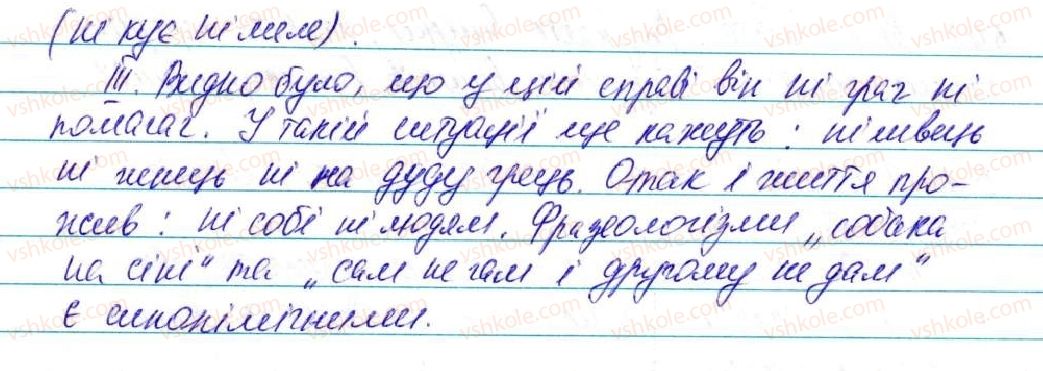 (ні кує ні меле).
III. Видно було, що у цій справі він ні грач ні
помагач. У такій ситуації ще кажуть: ні швець
ні жнець ні на дуду грець. Отак і життя про-
жив: ні собі ні людям. Фразеологізми „собака
на сіні" та „сам не гам і другому не дам"
є синонімічними.